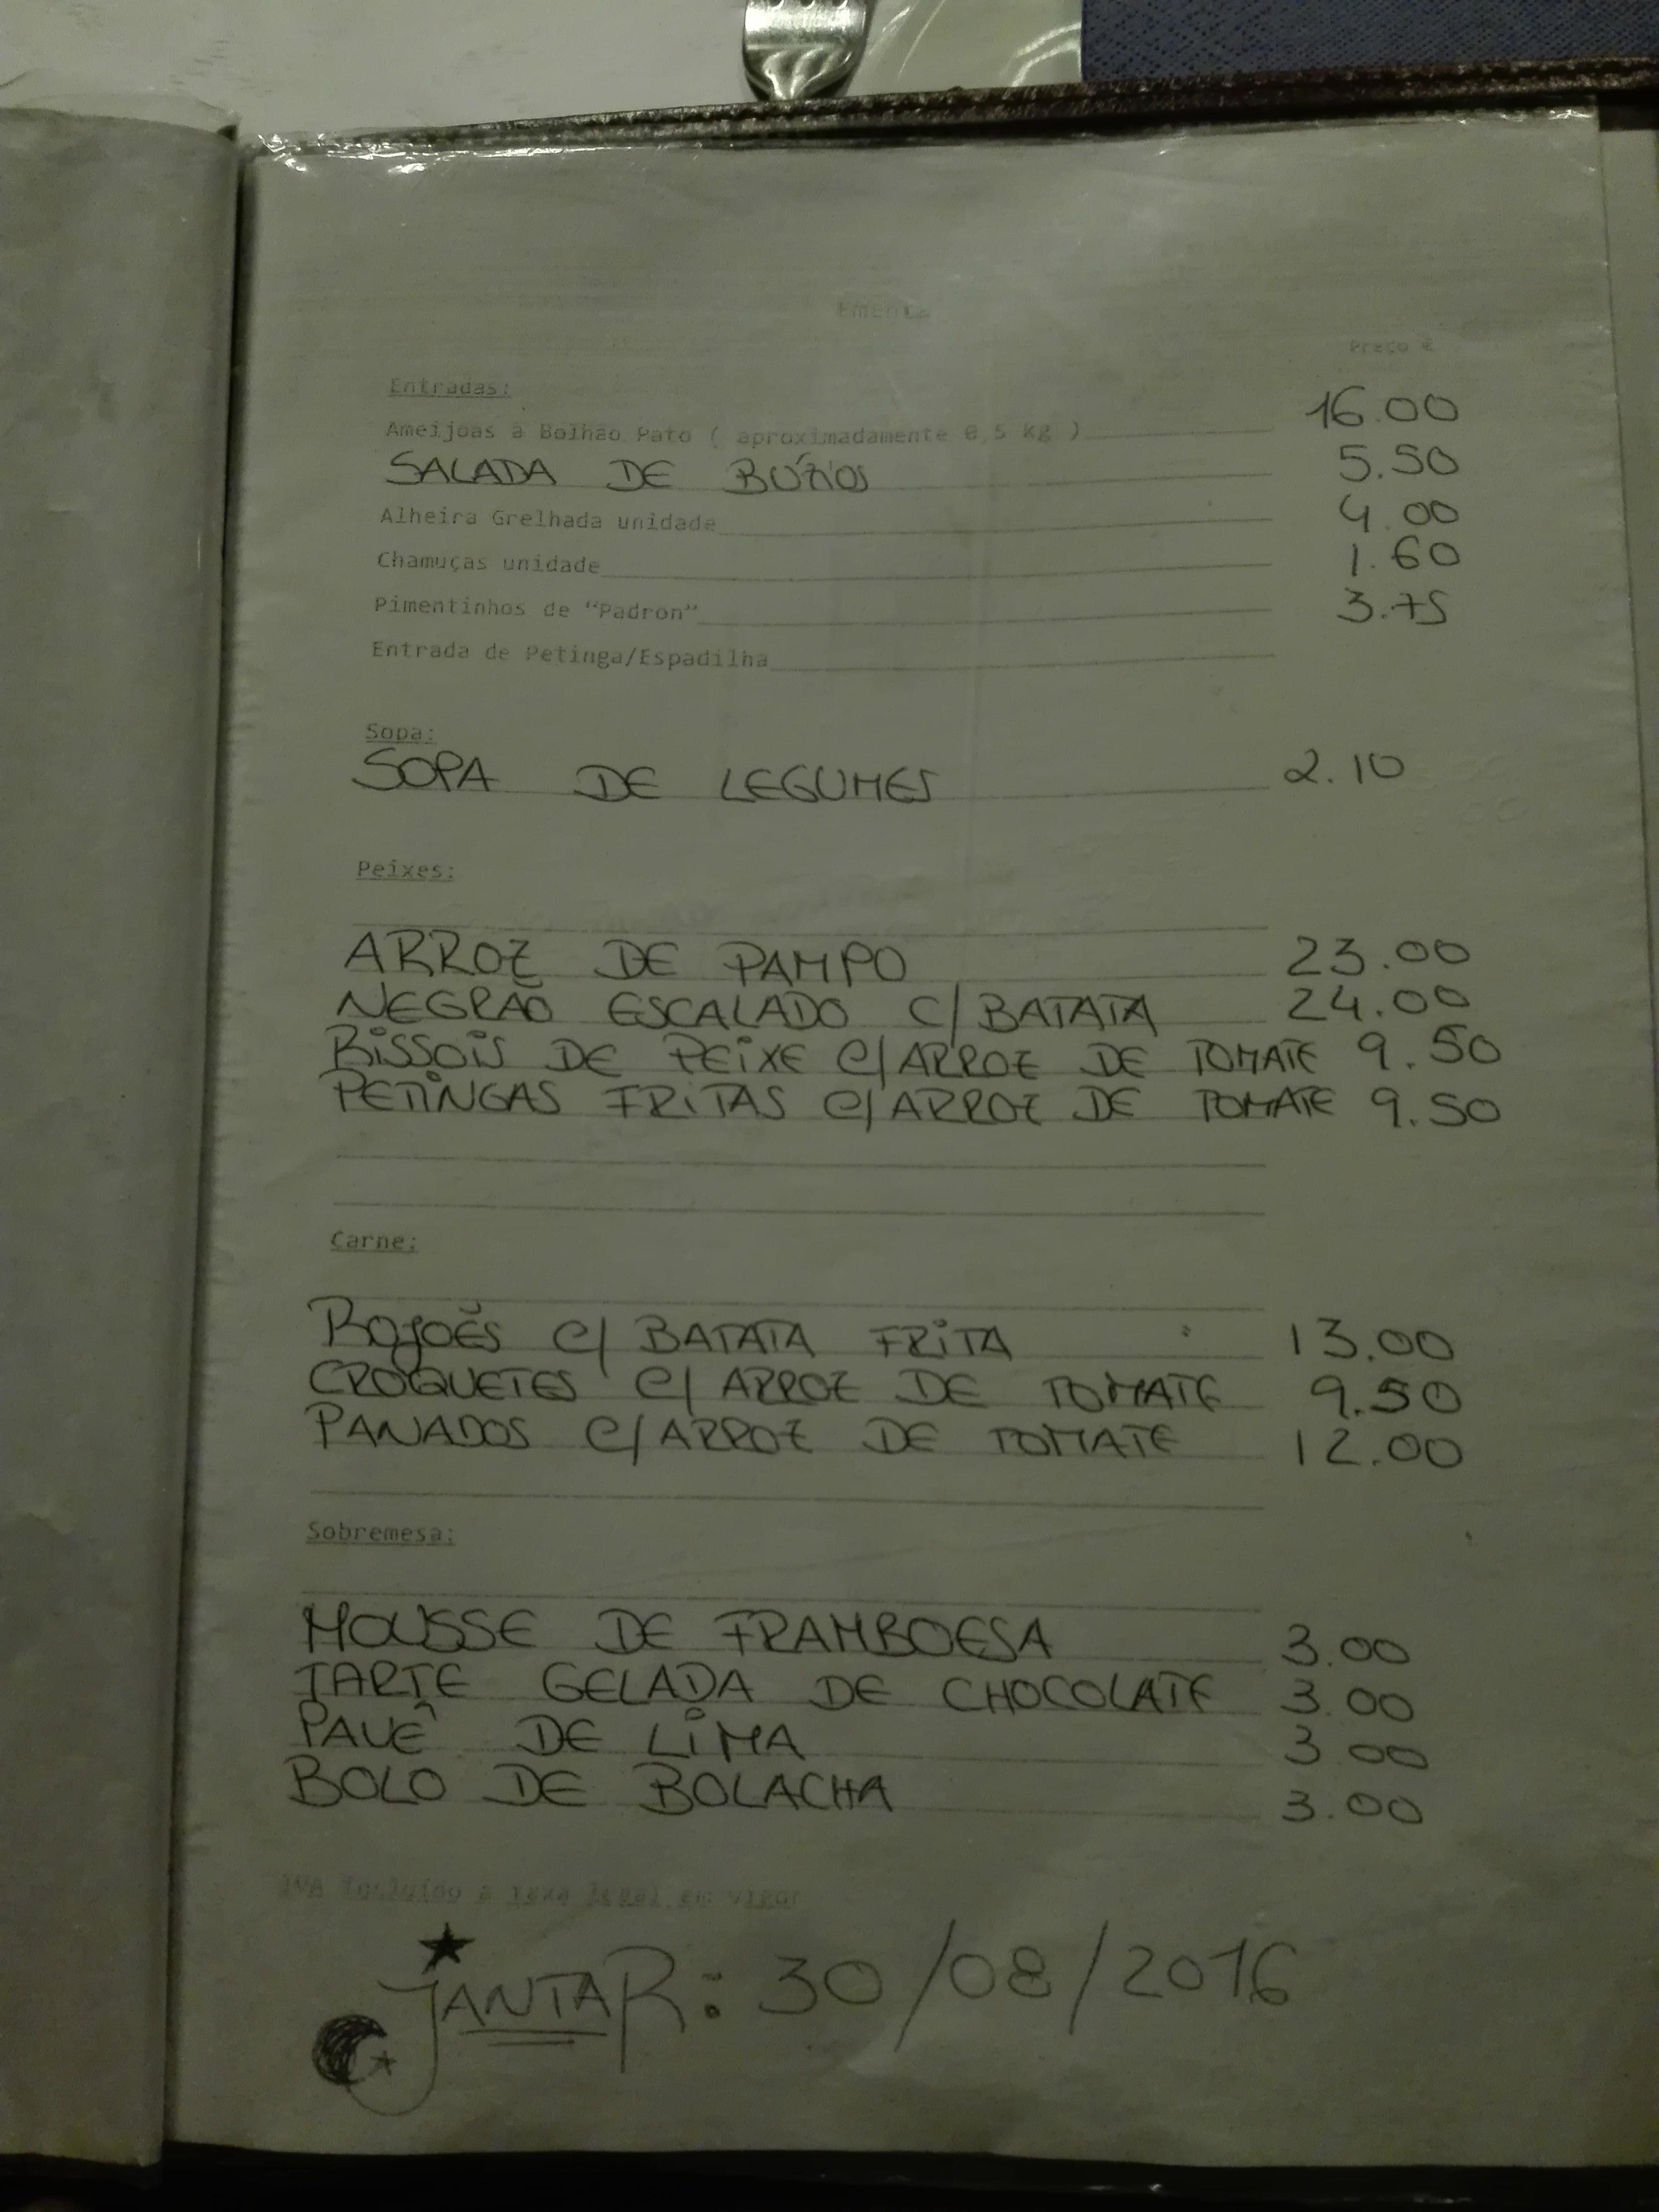 Ementa
Preço €
Entradas:
Ameijoas à Bolhão Pato ( aproximadamente 0,5 kg ) 16.00
SALADA DE BÚZIOS 5.50
Alheira Grelhada unidade 4.00
Chamuças unidade 1.60
Pimentinhos de “Padron” 3.75
Entrada de Petinga/Espadilha
Sopa:
SOPA DE LEGUMES 2.10
Peixes:
ARROZ DE PAMPO 23.00
NEGRÃO ESCALADO C/ BATATA 24.00
RISSOIS DE PEIXE C/ARROZ DE TOMATE 9.50
PETINGAS FRITAS C/ARROZ DE TOMATE 9.50
Carne:
ROJOẼS C/ BATATA FRITA 13.00
CROQUETES C/ ARROZ DE TOMATE 9.50
PANADOS C/ARROZ DE TOMATE 12.00
Sobremesa:
MOUSSE DE FRAMBOESA 3.00
TARTE GELADA DE CHOCOLATE 3.00
PAVÊ DE LIMA 3.00
BOLO DE BOLACHA 3.00
IVA incluído à taxa legal em vigor
JANTAR: 30/08/2016